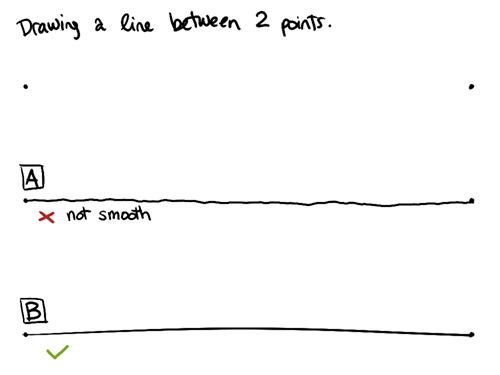 Drawing a line between 2 points.
A
not smooth
B